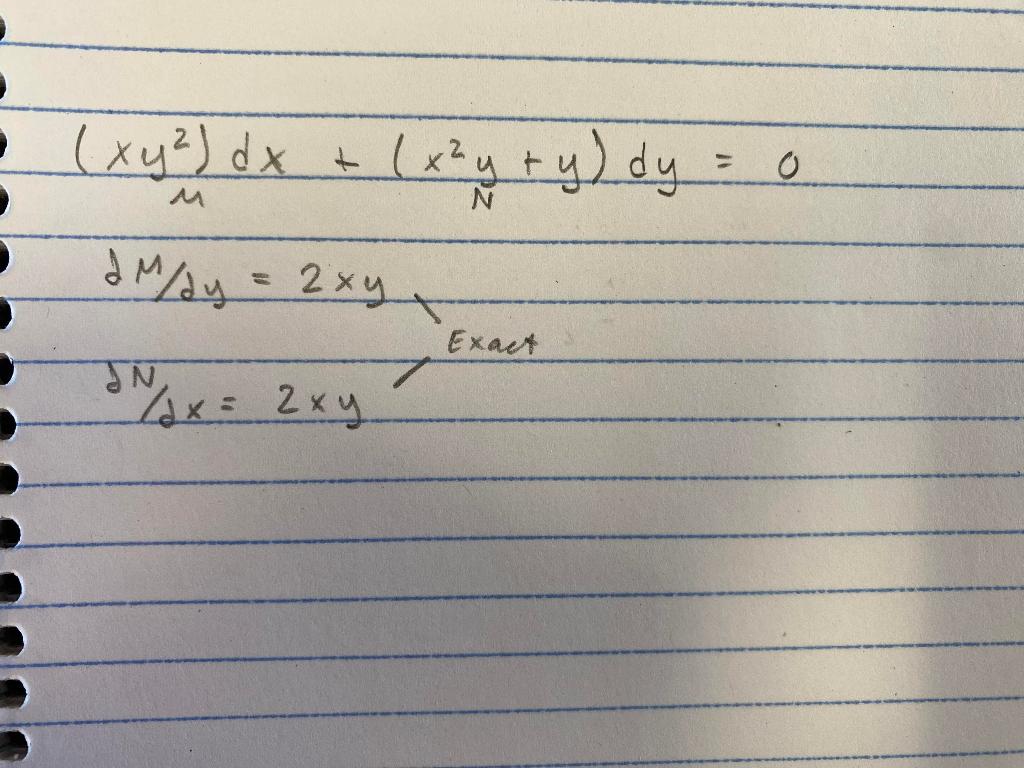 (xy²) dx + (x²y + y) dy = 0
M N
∂M/∂y = 2xy
Exact
∂N/∂x = 2xy